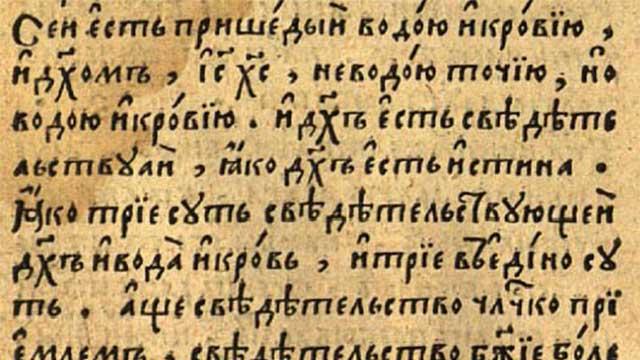 Се́й є҆́сть прише́дый водо́ю и҆кро́вїю,
и҆дх҃омъ, і҆с҃ х҃с, неводо́ю точїю, но
водо́ю и҆кро́вїю. и҆дх҃ъ є҆́сть свѣдѣте
льствуай, ꙗ҆ко дх҃ъ є҆́сть и҆стина.
Ꙗ҆ко трїе суть свѣдѣтельствующей
дх҃ъ и҆вода̀ и҆кро́вь, и҆трїе въе҆ди́но су
ть. а҆ще свѣдѣтельство чл҃чко прї
е҆млемъ. свѣдѣтельство бж҃їе бо́ле